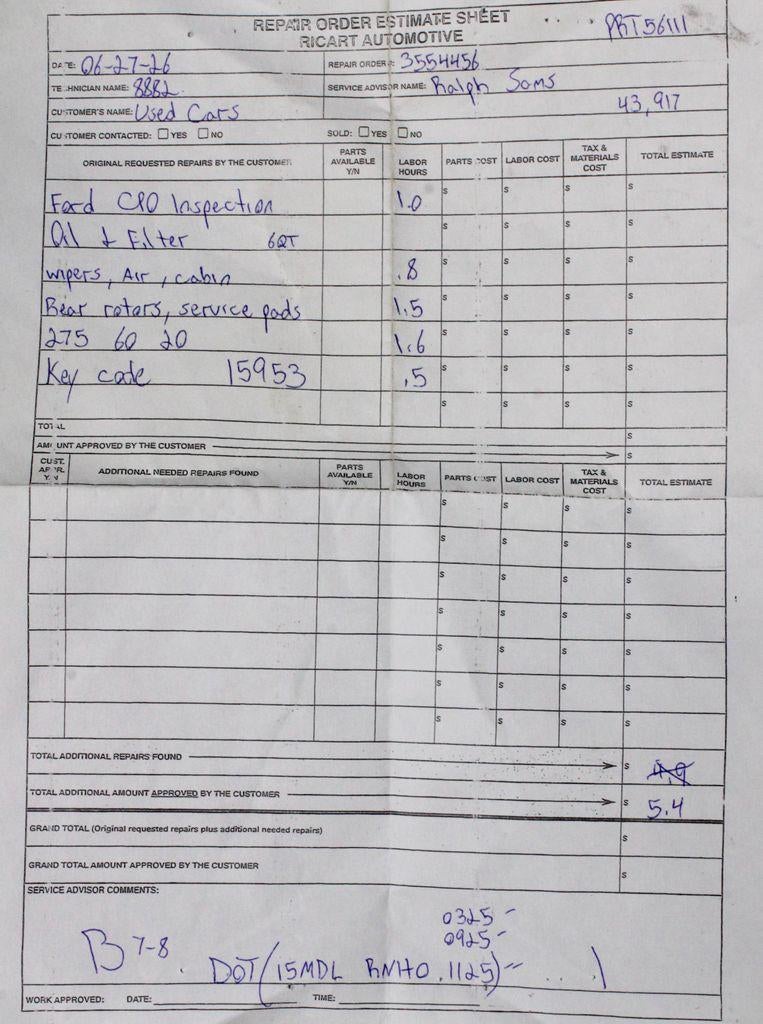 REPAIR ORDER ESTIMATE SHEET
RICART AUTOMOTIVE
PRT56111
DATE: 06-27-26 REPAIR ORDER #: 3554456
TECHNICIAN NAME: 8882 SERVICE ADVISOR NAME: Ralph Soms
CUSTOMER'S NAME: Used Cars 43,917
CUSTOMER CONTACTED: ☐ YES ☐ NO SOLD: ☐ YES ☐ NO
ORIGINAL REQUESTED REPAIRS BY THE CUSTOMER PARTS AVAILABLE Y/N LABOR HOURS PARTS COST LABOR COST TAX & MATERIALS COST TOTAL ESTIMATE
Ford CPO Inspection 1.0 $ $ $ $
Oil & Filter 6QT $ $ $ $
wipers, Air, cabin .8 $ $ $ $
Rear rotors, service pads 1.5 $ $ $ $
275 60 20 1.6 $ $ $ $
Key code 15953 .5 $ $ $ $
$ $ $ $
TOTAL $
AMOUNT APPROVED BY THE CUSTOMER $
CUST. APPR. Y/N ADDITIONAL NEEDED REPAIRS FOUND PARTS AVAILABLE Y/N LABOR HOURS PARTS COST LABOR COST TAX & MATERIALS COST TOTAL ESTIMATE
$ $ $ $
$ $ $ $
$ $ $ $
$ $ $ $
$ $ $ $
$ $ $ $
$ $ $ $
TOTAL ADDITIONAL REPAIRS FOUND $ 4.9
TOTAL ADDITIONAL AMOUNT APPROVED BY THE CUSTOMER $ 5.4
GRAND TOTAL (Original requested repairs plus additional needed repairs) $
GRAND TOTAL AMOUNT APPROVED BY THE CUSTOMER $
SERVICE ADVISOR COMMENTS:
0325 -
0925 -
B 7-8 DOT (15MDL RNHO .1125) - )
WORK APPROVED: DATE: TIME: